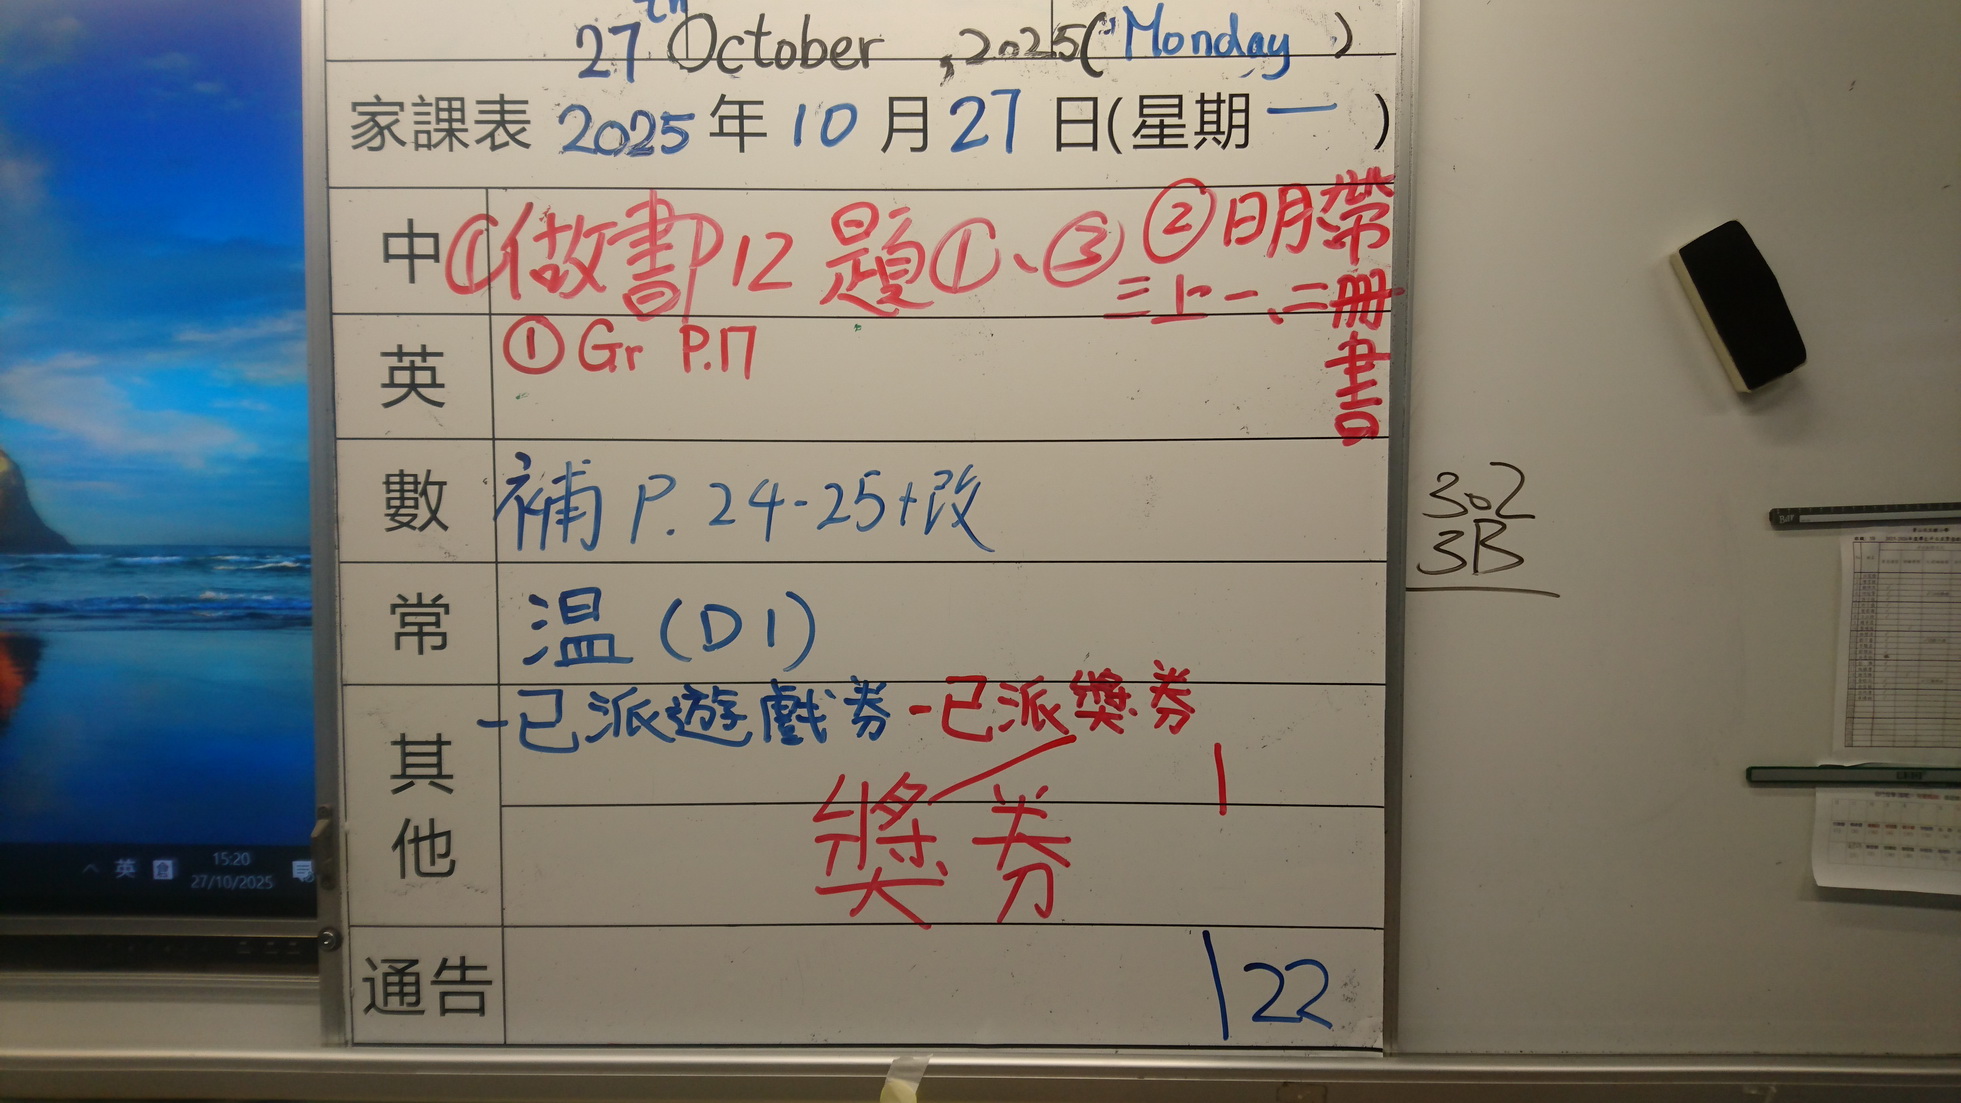 27th October , 2025 (Monday)
家課表 2025年10月27日(星期一)
中 ①做書P12 題①、③ ②日月帶
三上一、二冊
書
英 ① Gr P.17
數 補 P. 24-25+改
常 温 (D1)
其他 -已派遊戲券 -已派獎券
獎券
通告 | 22
302
3B
英 倉 15:20
27/10/2025